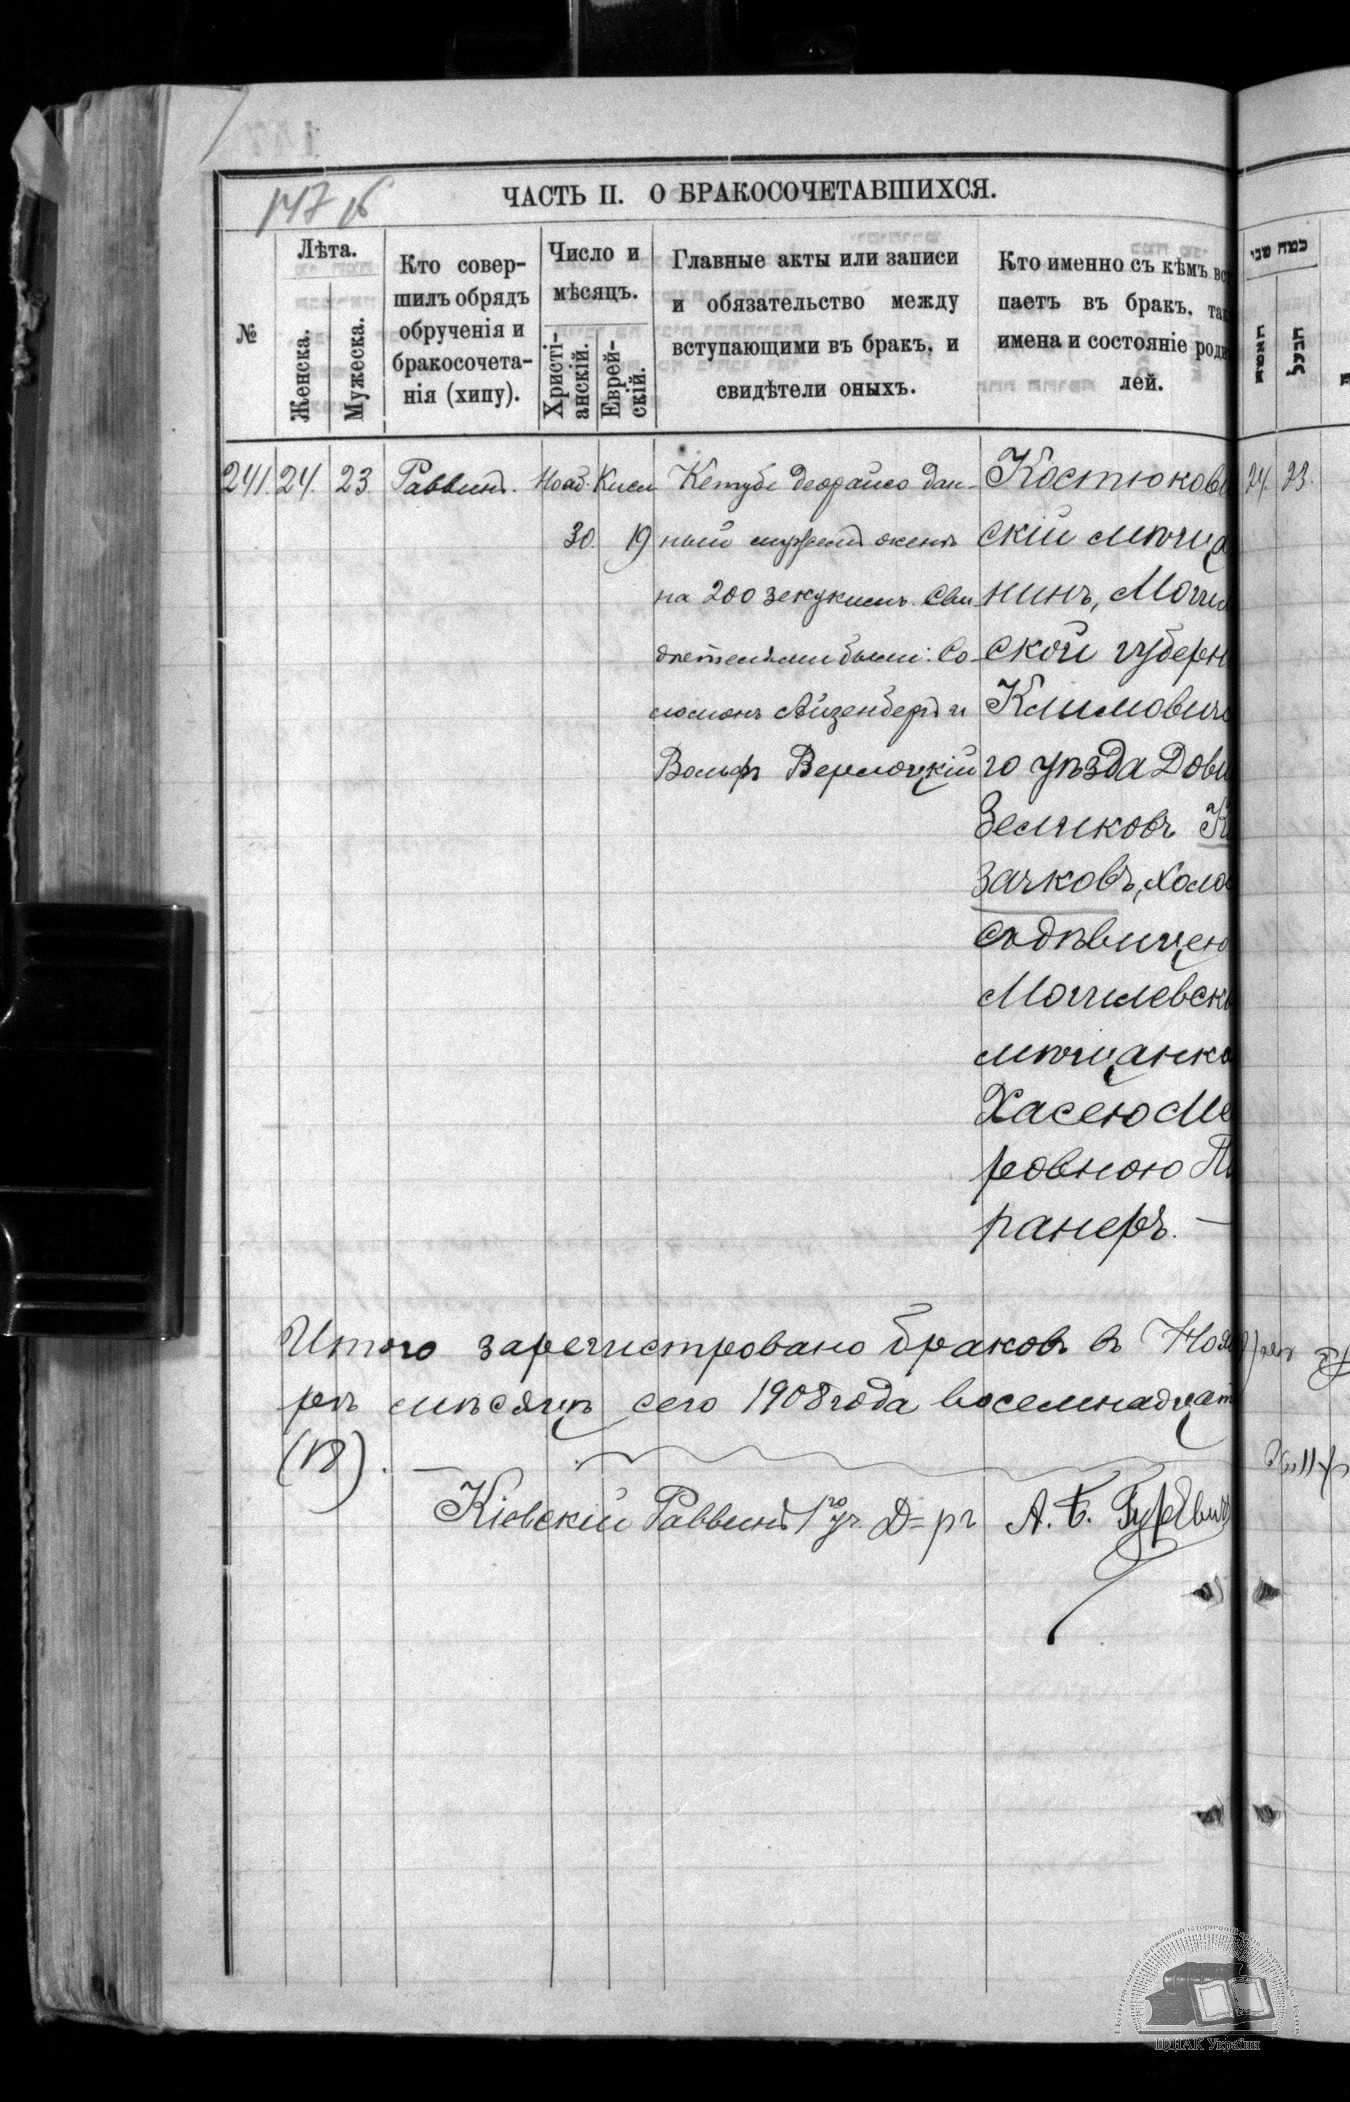 147 об
ЧАСТЬ II. О БРАКОСОЧЕТАВШИХСЯ.
№
Лѣта.
Женска.
Мужеска.
Кто совер-
шилъ обрядъ
обрученія и
бракосочета-
нія (хипу).
Число и
мѣсяцъ.
Христі-
анскій.
Еврей-
скій.
Главные акты или записи
и обязательство между
вступающими въ бракъ, и
свидѣтели оныхъ.
Кто именно съ кѣмъ вс
паетъ въ бракъ, так
имена и состояніе роди
лей.
כמה שני
האשה
הבעל
241. 24. 23. Раввинъ. Нояб. Кисл
30. 19
Кетубе деорайсо дан-
ный мужемъ женѣ
на 200 зекукимъ. Сви
дѣтелями были: Со-
ломонъ Айзенбергъ и
Вольфъ Верлоцкій
Костюкови
скій мѣща
нинъ, Могил
ской губерн
Климовичс
го уѣзда Дови
Зеликовъ К
зачковъ, холо
съ дѣвицею
Могилевск
мѣщанко
Хасею Ме
ровною
ранеръ. —
24. 23.
Итого зарегистровано браковъ въ Нояб
рѣ мѣсяцѣ сего 1908 года восемнадцат
(18). —
Кіевскій Раввинъ 1го уч. Д-ръ А. Б. Гуревичъ
ЦДІАК України